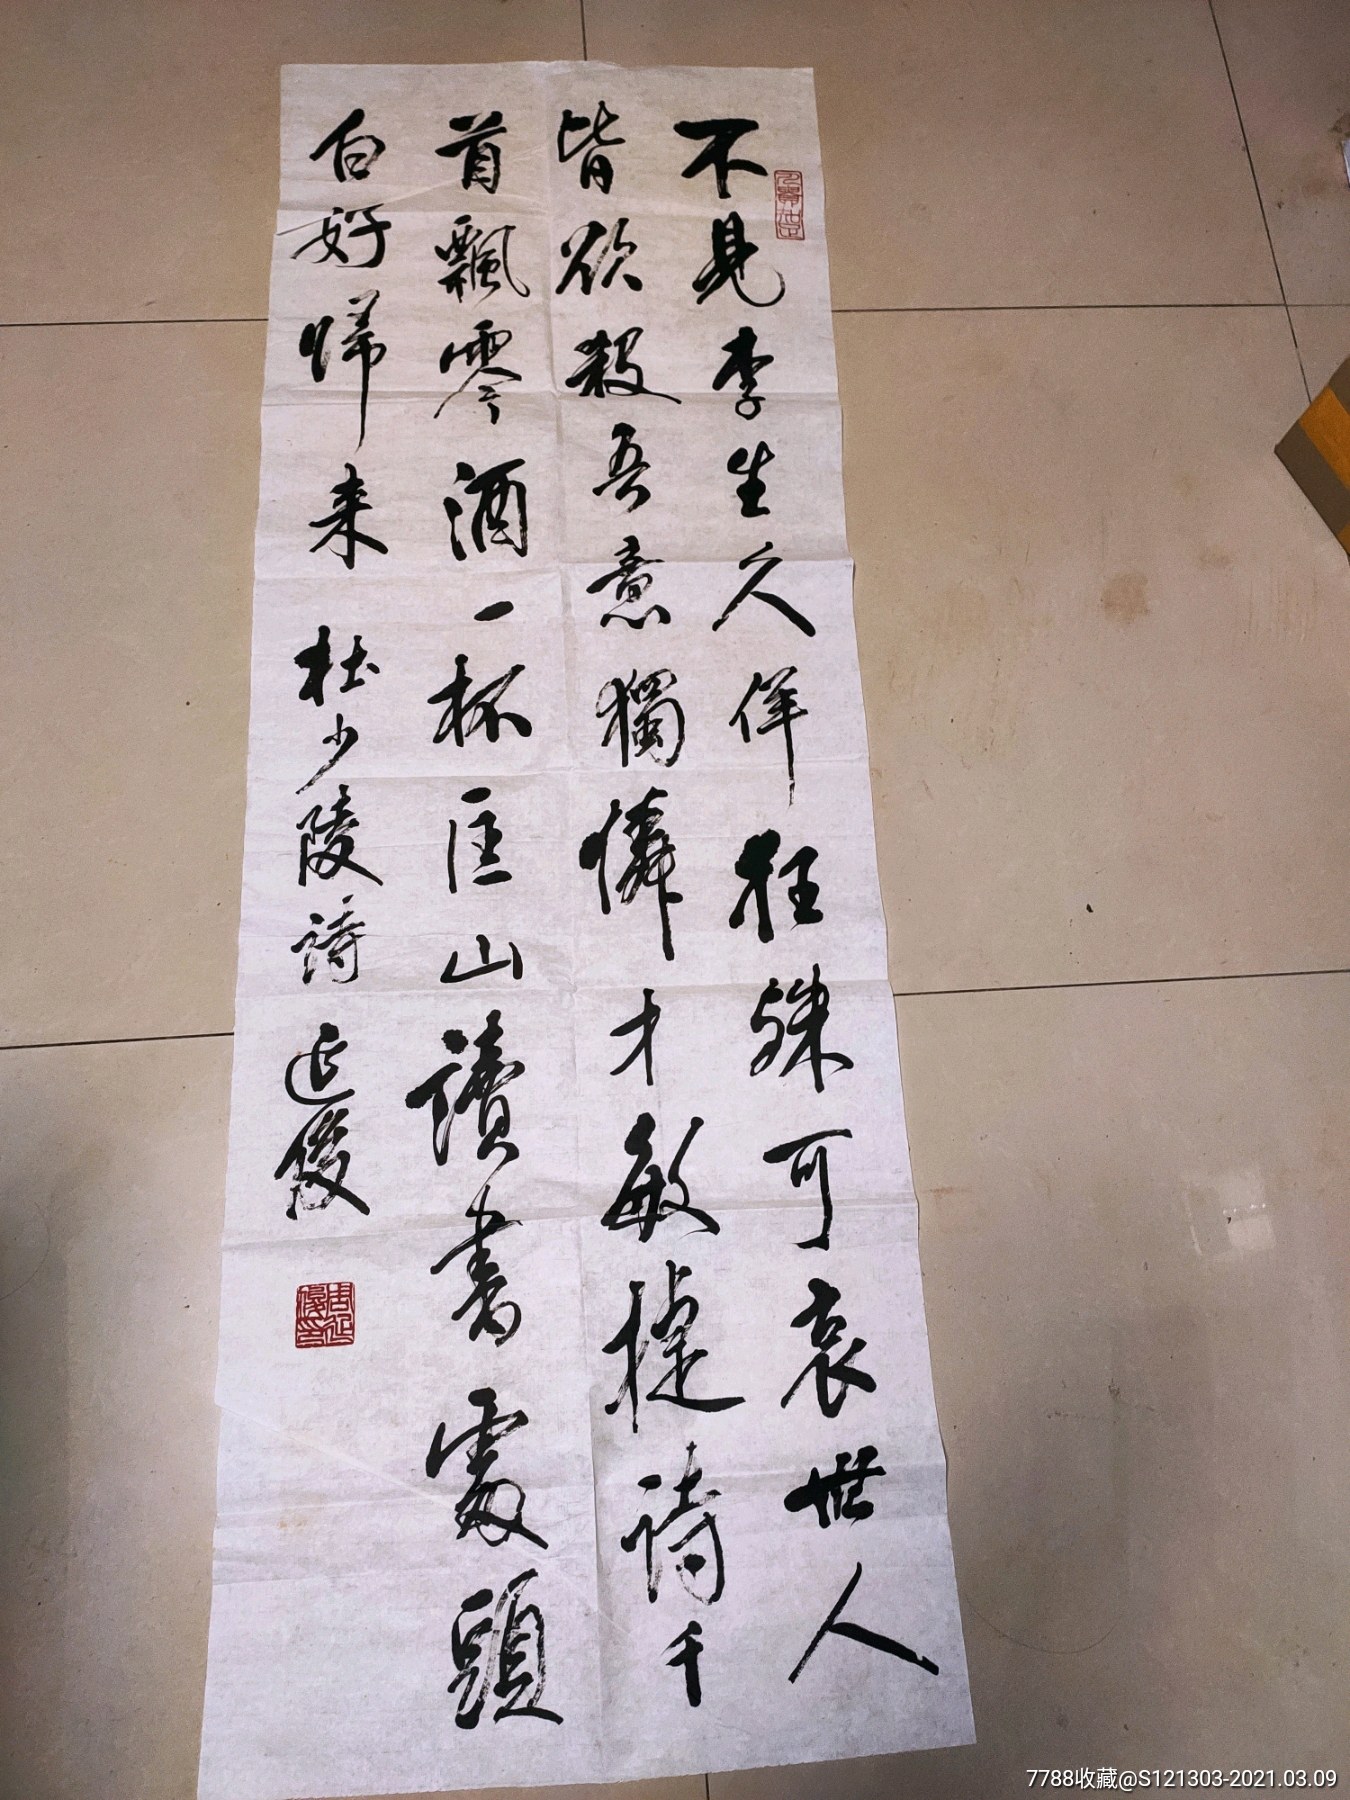 不見李生久佯狂殊可哀世人
皆欲殺吾意獨憐才敏捷詩千
首飄零酒一杯匡山讀書處頭
白好歸来 杜少陵詩 延俊
周延俊印
7788收藏@S121303-2021.03.09